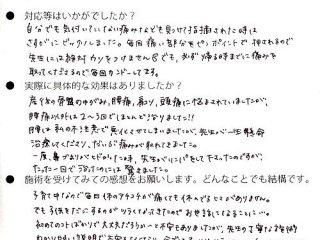 ● 対応等はいかがでしたか?
自分でも気付いていない痛みなども見つけて指摘された時は
さすがにビックリしました。毎回痛い部分をピンポイントで押されるので
先生には絶対ウソをつけません(笑)でも、必ず帰る時までに痛みを
取ってくださるので毎回感謝してます。
● 実際に具体的な効果はありましたか?
産後の骨盤のゆがみ、腰痛、肩こり、頭痛に悩まされていましたが、
腰痛以外は2~3回でほとんどなくなりました!!
腰は私の不注意で悪くさせてしまいましたが、先生が一生懸命
治療してくださり、だいぶ痛みが取れてきました。
一度、首が
たった一回で治ったのには驚きました。
● 施術を受けてみての感想をお願いします。どんなことでも結構です。
子育て中なので毎日体のアチコチが痛くても休んでるヒマがありません。
でも子供をだっこするのがつらくなってきたのでお世話になることに…。
初めてのトコばかりで大丈夫だろうか…と不安もありましたが、先生の丁寧な
わかりやすい説明で